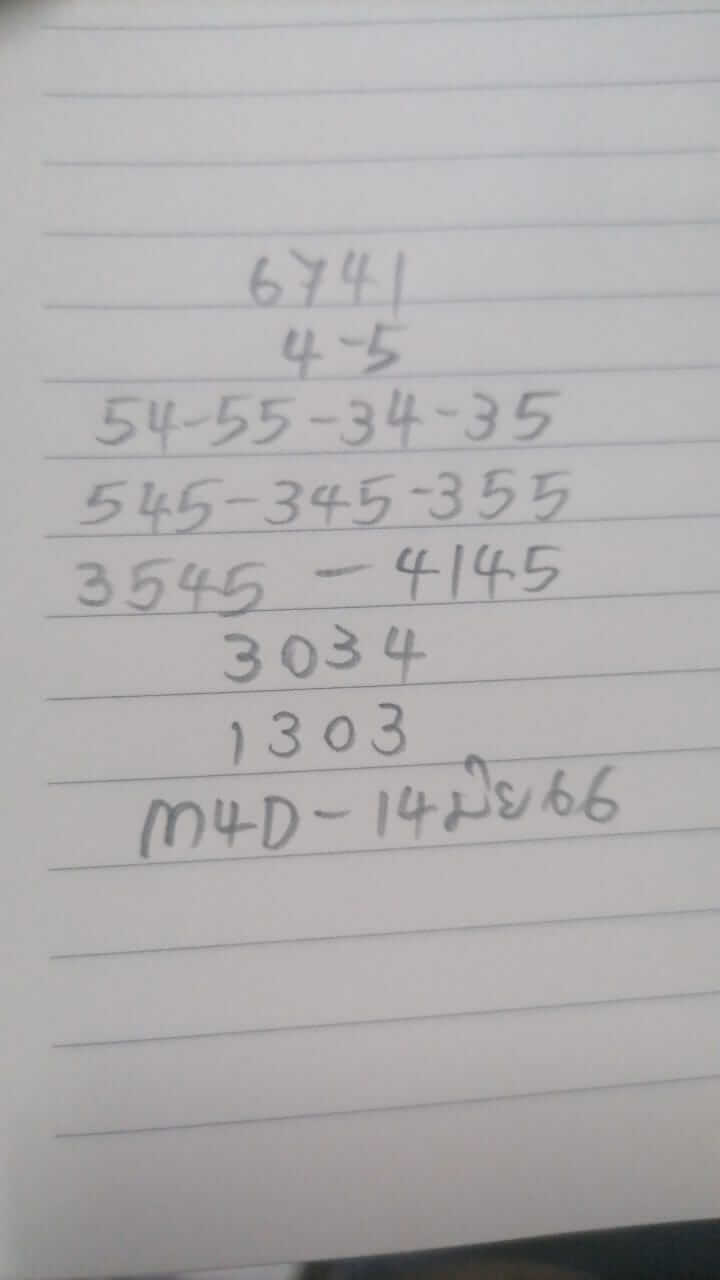 6741
4-5
54-55-34-35
545-345-355
3545 - 4145
3034
1303
M4D-14มิย66